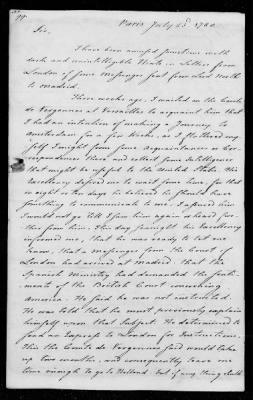 Paris July 23. 1780.
Sir,
I have been amused sometime with
dark and unintelligible Hints in Letters from
London of some Messenger sent from Lord North
to Madrid.
Three weeks ago, I waited on the Comte
de Vergennes at Versailles to acquaint him that
I had an intention of making a Journey to
Amsterdam for a few Weeks, as I flattered my
self I might form some Acquaintances or Cor-
respondences there and collect some Intelligence
that might be useful to the United States. His
Excellency desired me to wait some time, for that
in eight or ten days he believed he should have
something to communicate to me. I assured him
I would not go till I saw him again or heard fur-
ther from him. This day fortnight his Excellency
informed me, that he was ready to let me
know, that a Messenger from the Court of
London had arrived at Madrid. that the
Spanish Ministry had demanded the senti-
ments of the British Court concerning
America. He said he was not instructed.
He was told that he must previously explain
himself upon that Subject. He determined to
send an Express to London for Instructions.
This the Comte de Vergennes said would take
up two months, and consequently leave me
time enough to go to Holland. but if any thing should